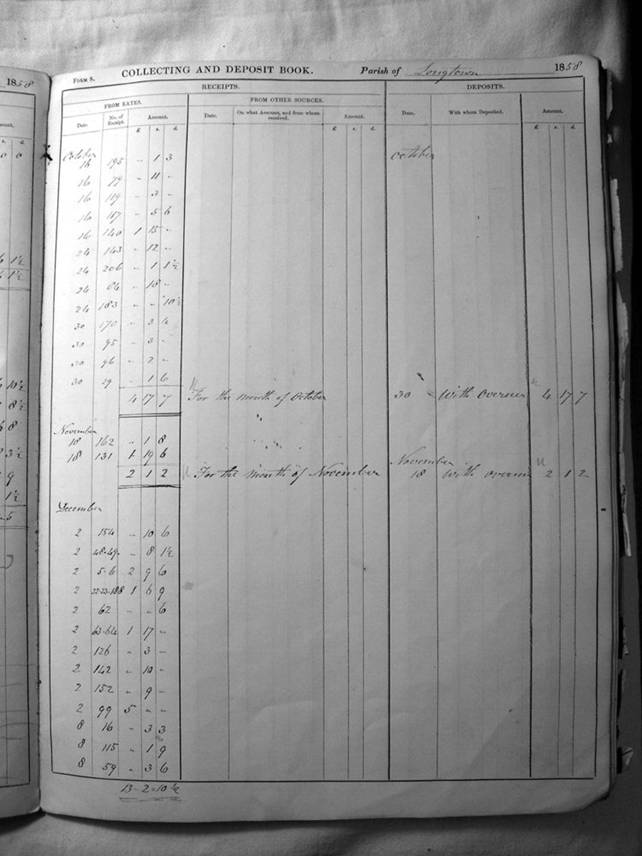 1858
FORM 8. COLLECTING AND DEPOSIT BOOK. Parish of Longtown 1858
RECEIPTS. DEPOSITS.
FROM RATES. FROM OTHER SOURCES.
Date. No. of Receipt. Amount. Date. On what Account, and from whom received. Amount. Date. With whom Deposited. Amount.
£ s. d. £ s. d. £ s. d.
October October
16 195 - 1 3
16 79 - 11 -
16 119 - 3 -
16 187 - 5 6
16 140 1 15 -
24 143 - 12 -
24 206 - 1 1½
24 - 18 -
24 183 - - 10½
30 170 - 3 4
30 95 - 3 -
30 96 - 2 -
30 - 1 6
4 17 7 For the month of October 30 With Overseer 4 17 7
November
18 162 - 1 8
18 131 1 19 6 November
2 1 2 For the month of November 18 With overseer 2 1 2
December
2 154 - 10 6
2 48-49 - 8 1½
2 5-6 2 9 6
2 22-23-188 1 6 9
2 62 - - 6
2 63-64 1 17 -
2 126 - 3 -
2 142 - 10 -
2 152 - 9 -
2 99 5 - -
8 16 - 3 3
8 115 - 1 9
8 59 - 3 6
13-2-10½